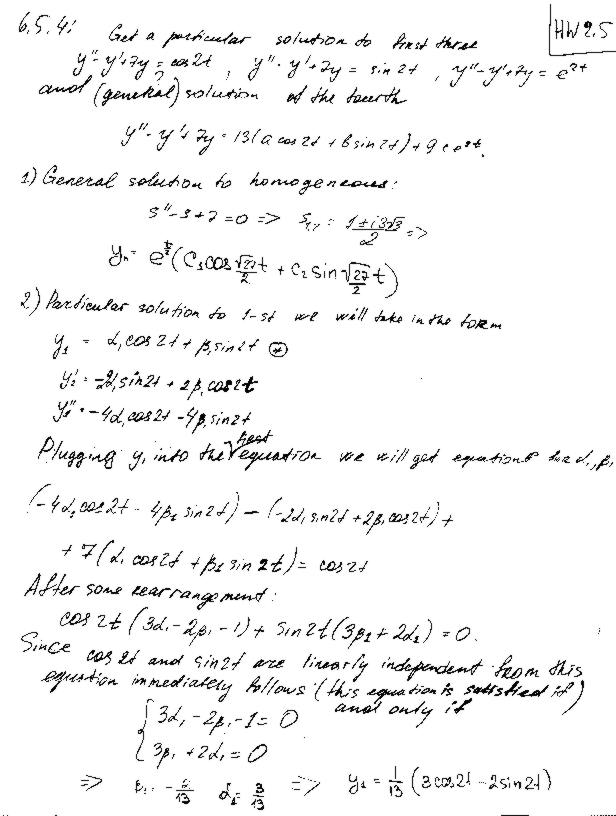 HW 2.5
6.5.4: Get a particular solution to first three
y''-y'+7y = cos2t, y''-y'+7y = sin2t, y''-y'+7y = e^{2t}
and (general) solution of the fourth
y''-y'+7y = 13(a cos2t + b sin2t) + 9ce^{2t}.
1) General solution to homogeneous:
s''-s+7=0 => s_{1,2} = \frac{1±i3√3}{2} =>
y_h = e^{\frac{t}{2}}(C_1 cos \frac{√27}{2} t + C_2 sin \frac{√27}{2} t)
2) Particular solution to 1-st we will take in the form
y_1 = α_1 cos2t + β_1 sin2t (*)
y_1' = -2α_1 sin2t + 2β_1 cos2t
y_1'' = -4α_1 cos2t - 4β_1 sin2t
Plugging y_1 into the first equation we will get equations for α_1, β_1
(-4α_1 cos2t - 4β_1 sin2t) - (-2α_1 sin2t + 2β_1 cos2t) +
+ 7(α_1 cos2t + β_1 sin2t) = cos2t
After some rearrangement:
cos2t (3α_1 - 2β_1 - 1) + sin2t (3β_1 + 2α_1) = 0.
Since cos2t and sin2t are linearly independent from this
equation immediately follows (this equation is satisfied if)
and only if
{ 3α_1 - 2β_1 - 1 = 0
3β_1 + 2α_1 = 0
=> β_1 = -\frac{2}{13} α_1 = \frac{3}{13} => y_1 = \frac{1}{13} (3cos2t - 2sin2t)